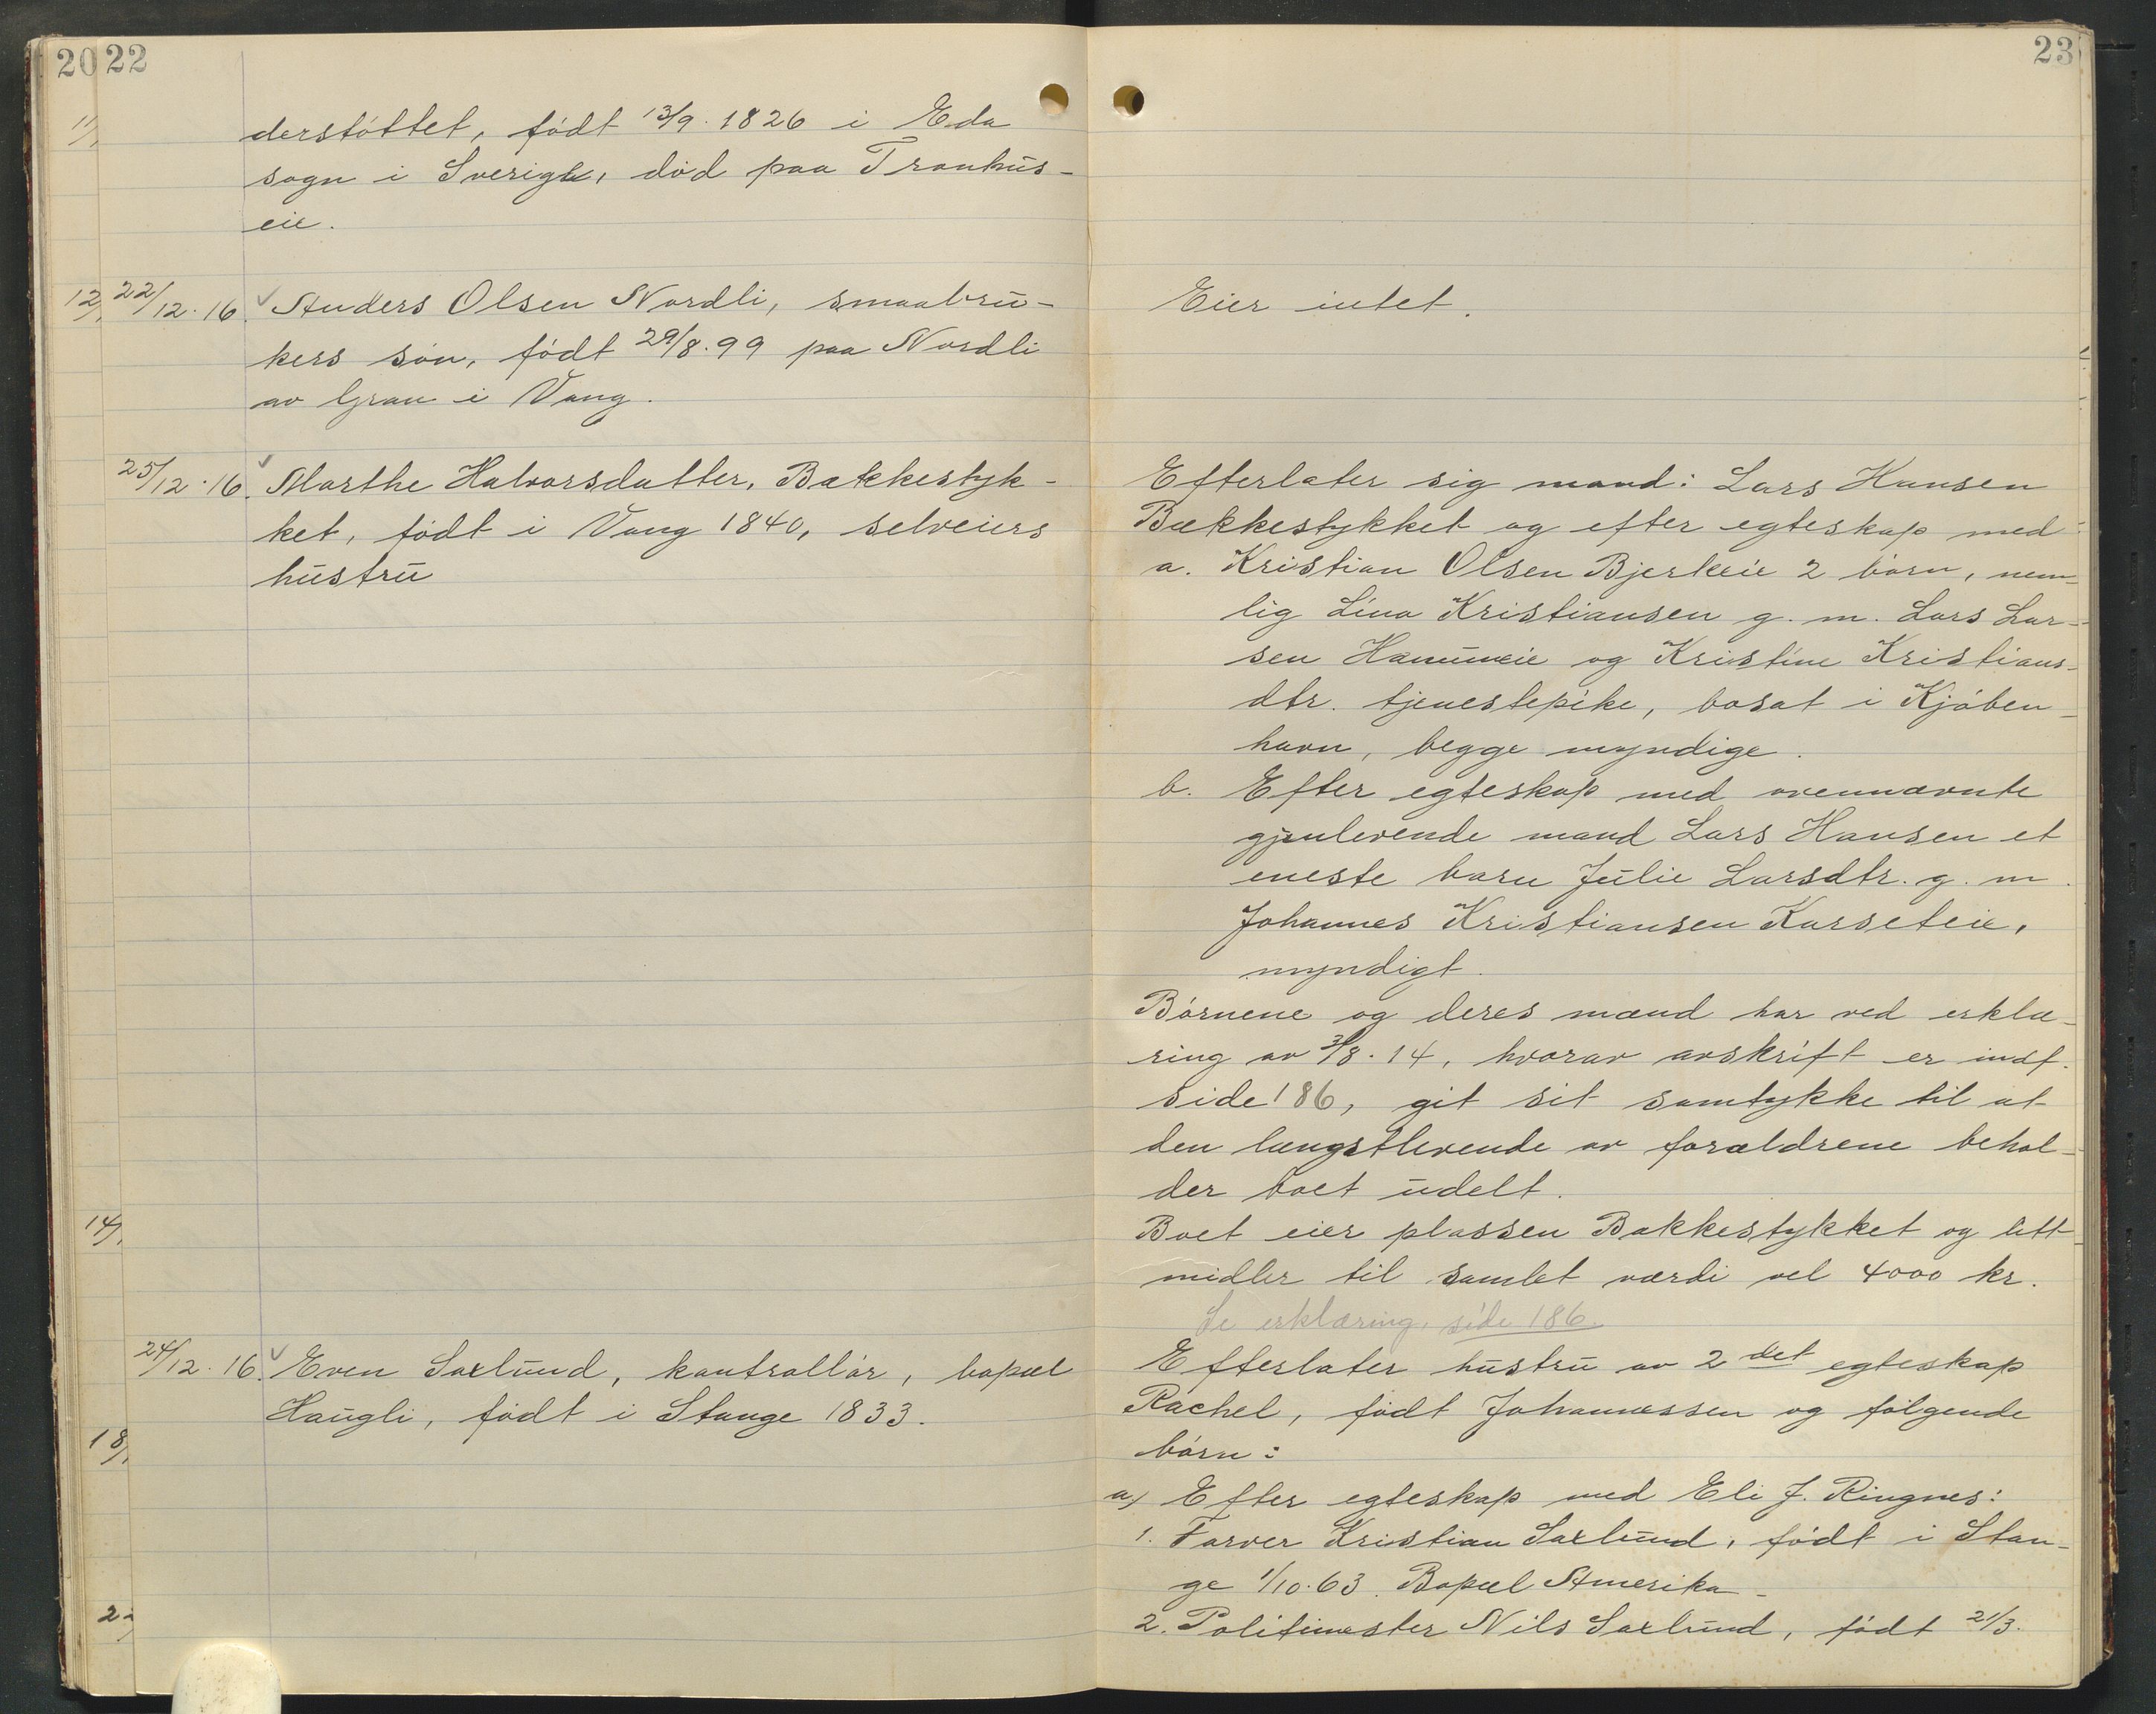 20 22
derstøttet, født 13/9. 1826 i Eda
sogn i Sverige, død paa Tronhus-
eie.
22/12. 16. Anders Olsen Nordli, smaabru-
kers søn, født 29/8. 99 paa Nordli
av Gran i Vang.
25/12. 16. Marthe Halvorsdatter, Bakkestyk-
ket, født i Vang 1840, selveiers
hustru
24/12. 16. Even Saxlund, kontrollør, bopæl
Haugli, født i Stange 1833.
11/
12/
14/
18/
23
Eier intet.
Efterlater sig mand: Lars Hansen
Bækkestykket og efter egteskap med
a. Kristian Olsen Bjerkeie 2 børn, nem-
lig Lina Kristiansen g. m. Lars Lar-
sen Hanumeie og Kristine Kristians-
dtr. tjenestepike, bosat i Kjøben-
havn, begge myndige.
b. Efter egteskap med ovennævnte
gjenlevende mand Lars Hansen et
eneste barn Julie Larsdtr. g. m.
Johannes Kristiansen Kurseteie,
myndigt.
Børnene og deres mænd har ved erklæ-
ring av 3/8. 14, hvorav avskrift er indf.
side 186, git sit samtykke til at
den længstlevende av forældrene behol-
der boet udelt.
Boet eier plassen Bakkestykket og litt
midler til samlet værdi vel 4000 kr.
Se erklæring, side 186.
Efterlater hustru av 2det egteskap
Rachel, født Johannessen og følgende
børn:
a) Efter egteskap med Eli J. Ringnes:
1. Farver Kristian Saxlund, født i Stan-
ge 1/10. 63. Bopæl Amerika -
2. Politimester Nils Saxlund, født 21/3.